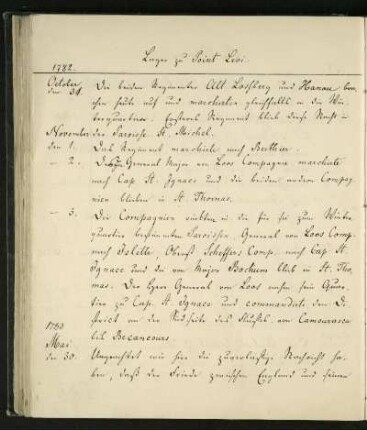 Lager zu Point Levi.
1782.
October den 31. Die beiden Regimenter Alt Loßberg und Hanau bra-
chen heute auf und marchirten gleichfalls in die Win-
terquartiere. Ersteres Regiment blieb diese Nacht in
November der Paroisse St. Michel.
den 1. Das Regiment marchirte nach Berthier.
— 2. General Major von Loos Compagnie marchirte
nach Cap St. Ignace und die beiden andern Compag-
nien blieben in St. Thomas.
— 3. Die Compagnien rückten in die für sie zum Winter
quartier bestimmten Paroissen. General von Loos Comp.
nach Islette, Obrist Scheffers Comp. nach Cap St.
Ignace und die von Major Bockum blieb in St. Tho-
mas. Der Herr General von Loos nahm sein Quar-
tier zu Cap. St. Ignace und commandirte den Di-
strict an der Südseite des Flusses von Camourasca
bis Becancours.
1783
Mai
den 30. Ungeachtet wir hier die zuverlässige Nachricht ha-
ben, daß der Friede zwischen England und seinen